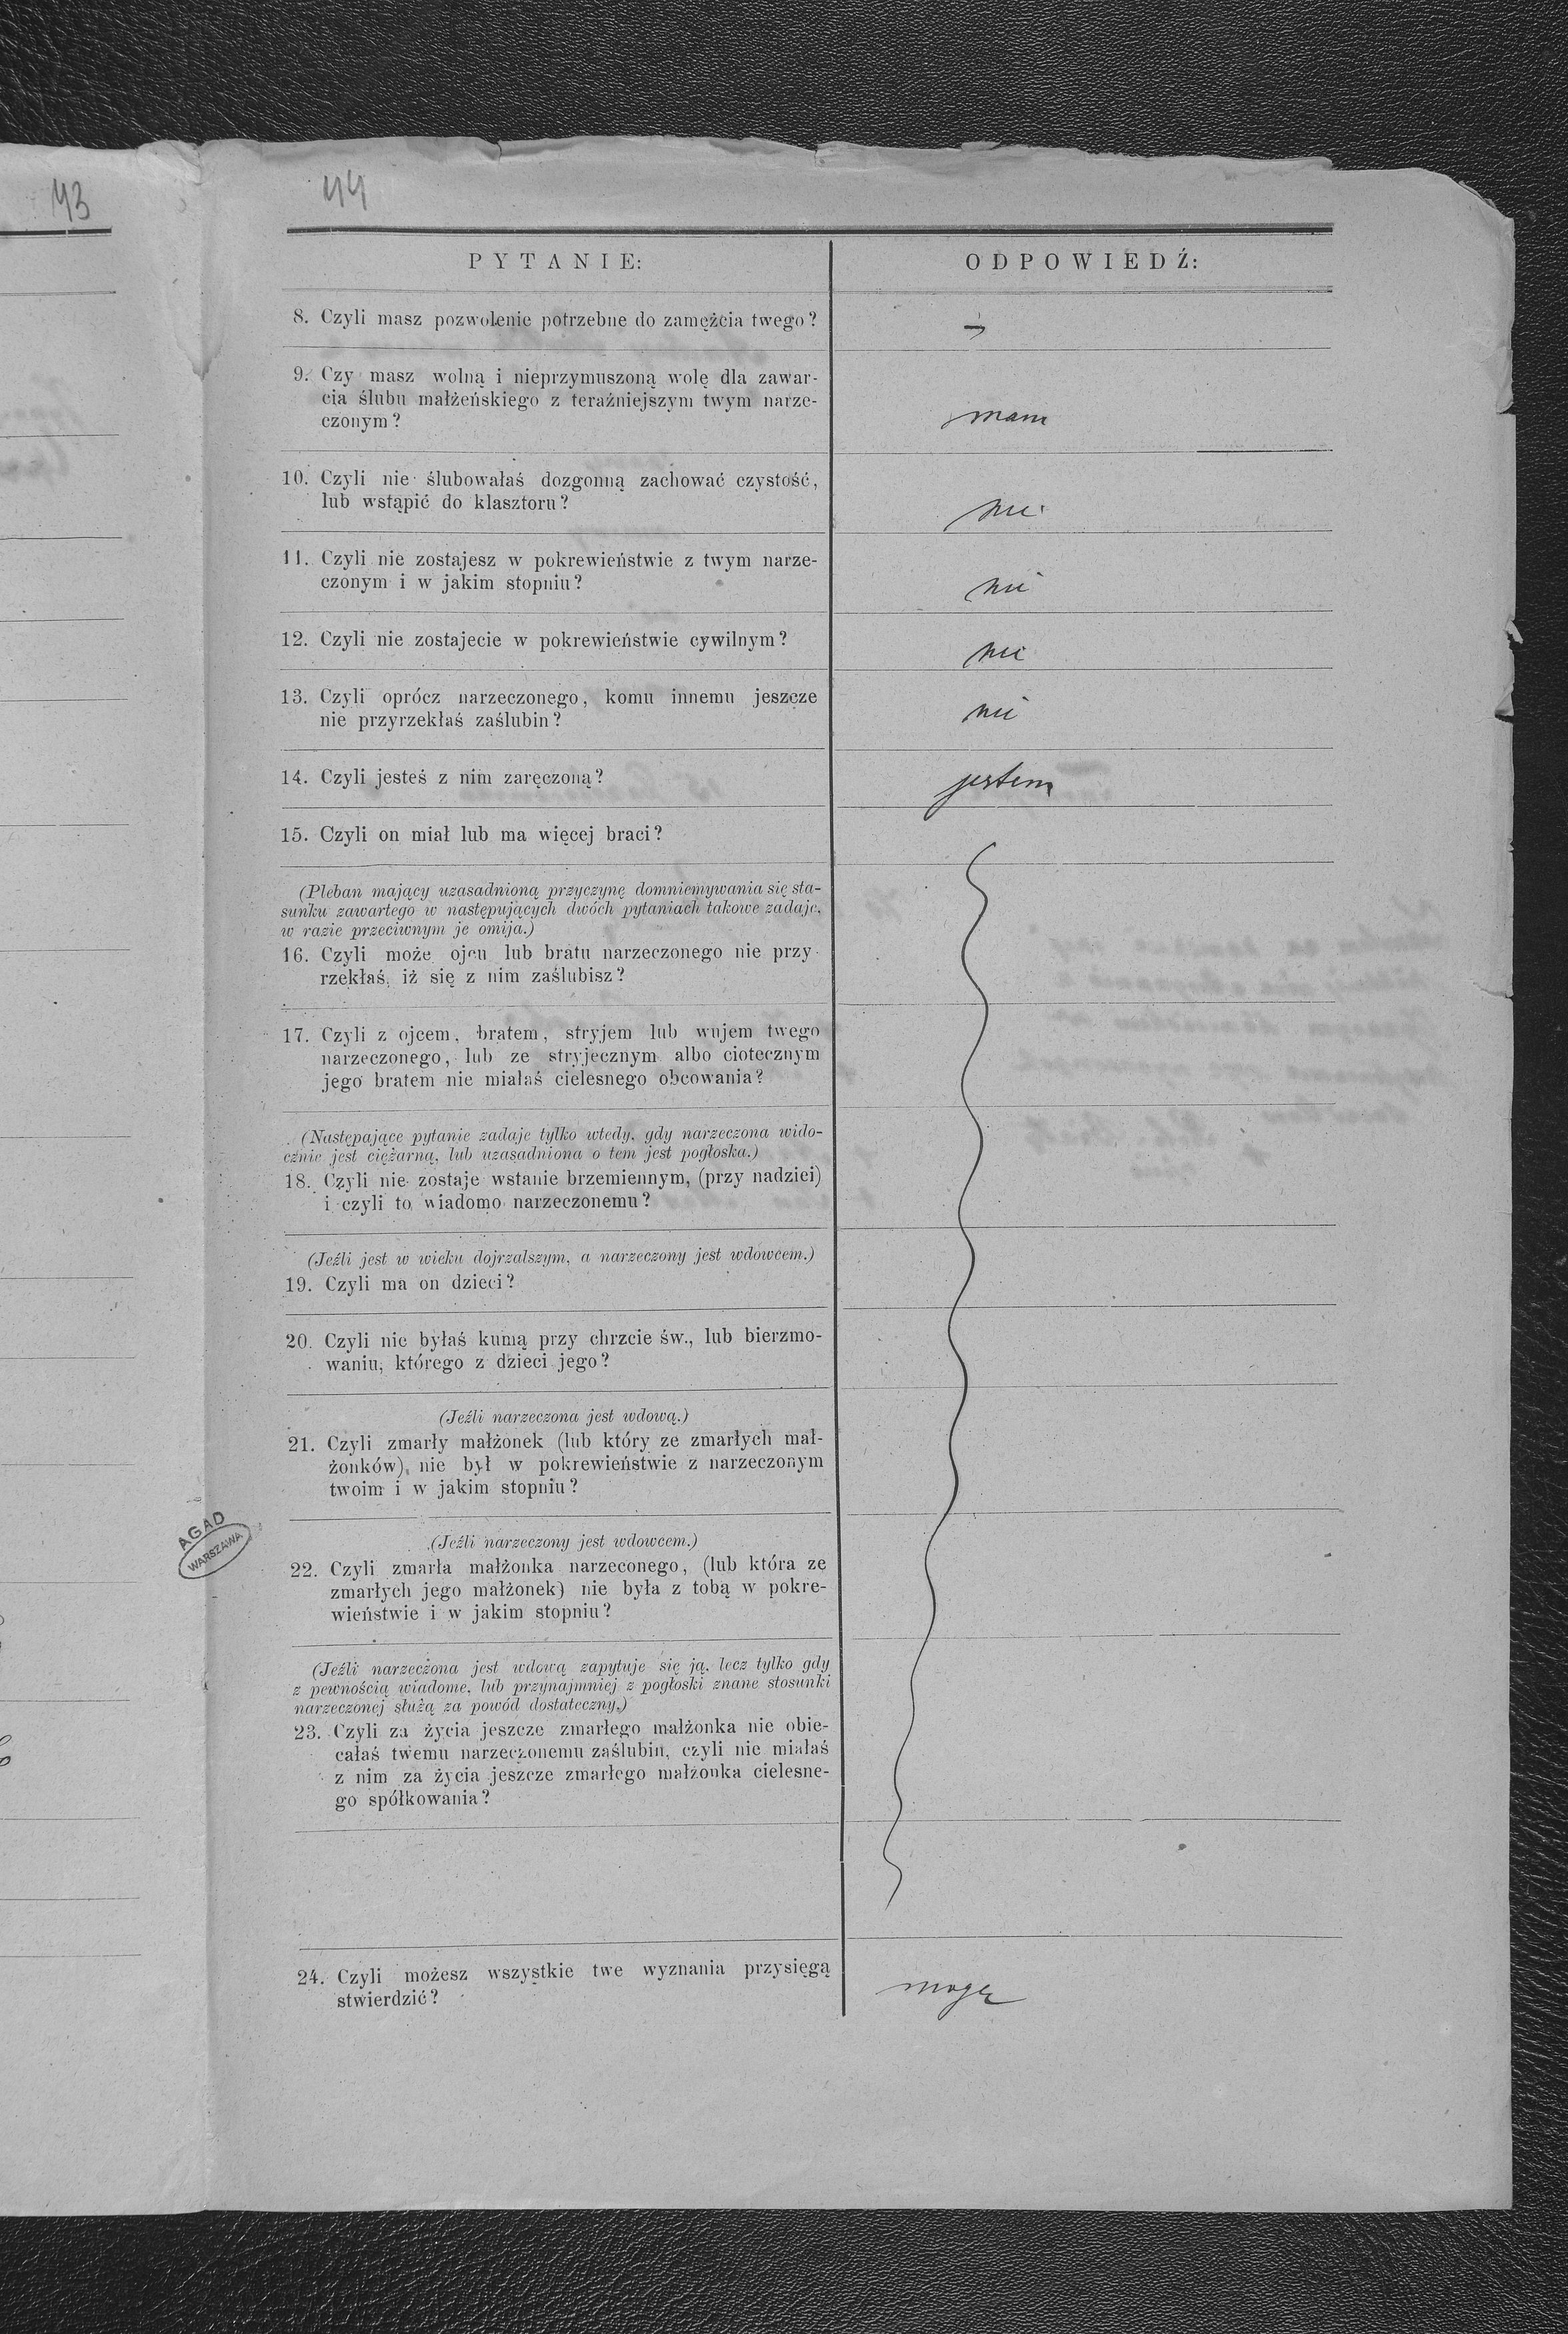 43
44
PYTANIE:
ODPOWIEDŹ:
8. Czyli masz pozwolenie potrzebne do zamężcia twego?
9. Czy masz wolną i nieprzymuszoną wolę dla zawar-
cia ślubu małżeńskiego z teraźniejszym twym narze-
czonym?
mam
10. Czyli nie ślubowałaś dozgonną zachować czystość,
lub wstąpić do klasztoru?
nie
11. Czyli nie zostajesz w pokrewieństwie z twym narze-
czonym i w jakim stopniu?
nie
12. Czyli nie zostajecie w pokrewieństwie cywilnym?
nie
13. Czyli oprócz narzeczonego, komu innemu jeszcze
nie przyrzekłaś zaślubin?
nie
14. Czyli jesteś z nim zaręczoną?
jestem
15. Czyli on miał lub ma więcej braci?
(Pleban mający uzasadnioną przyczynę domniemywania się sta-
sunku zawartego w następujących dwóch pytaniach takowe zadaje,
w razie przeciwnym je omija.)
16. Czyli może ojcu lub bratu narzeczonego nie przy-
rzekłaś, iż się z nim zaślubisz?
17. Czyli z ojcem, bratem, stryjem lub wujem twego
narzeczonego, lub ze stryjecznym albo ciotecznym
jego bratem nie miałaś cielesnego obcowania?
(Następające pytanie zadaje tylko wtedy, gdy narzeczona wido-
cznie jest ciężarną, lub uzasadniona o tem jest pogłoska.)
18. Czyli nie zostaje wstanie brzemiennym, (przy nadziei)
i czyli to wiadomo narzeczonemu?
(Jeźli jest w wieku dojrzalszym, a narzeczony jest wdowcem.)
19. Czyli ma on dzieci?
20. Czyli nie byłaś kumą przy chrzcie św., lub bierzmo-
waniu, którego z dzieci jego?
(Jeźli narzeczona jest wdową.)
21. Czyli zmarły małżonek (lub który ze zmarłych mał-
żonków), nie był w pokrewieństwie z narzeczonym
twoim i w jakim stopniu?
(Jeźli narzeczony jest wdowcem.)
22. Czyli zmarła małżonka narzeconego, (lub która ze
zmarłych jego małżonek) nie była z tobą w pokre-
wieństwie i w jakim stopniu?
(Jeźli narzeczona jest wdową zapytuje się ją, lecz tylko gdy
z pewnością wiadome, lub przynajmniej z pogłoski znane stosunki
narzeczonej służą za powód dostateczny.)
23. Czyli za życia jeszcze zmarłego małżonka nie obie-
całaś twemu narzeczonemu zaślubin, czyli nie miałaś
z nim za życia jeszcze zmarłego małżonka cielesne-
go spółkowania?
24. Czyli możesz wszystkie twe wyznania przysięgą
stwierdzić?
mogę
AGAD
WARSZAWA